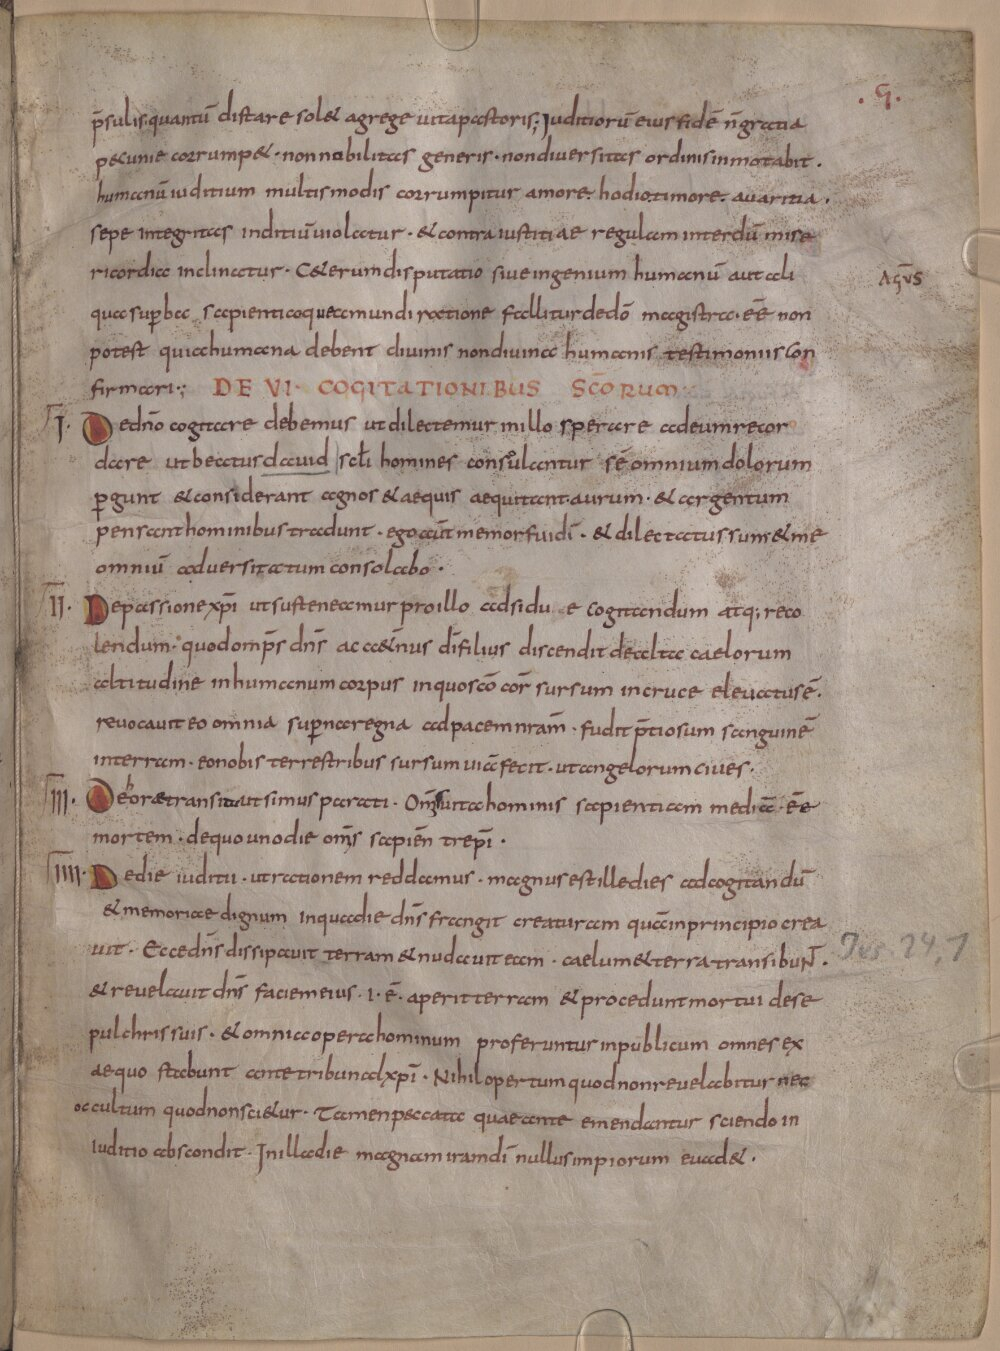 .G.
p̄sulis quantū distare sol& agrege uita pastoris; Juditiorū eius fidē n̄ gratia
pecunie corrump&. non nobilitas generis. non diuersitas ordinis inmotabit.
humanū iuditium multis modis corrumpitur amore. hodio. timore. auaritia.
sepe integritas inditiū uiolatur. & contra iustitiae regulam interdū mise
ricordia inclinatur. C&erum disputatio siue ingenium humanū aut ali
Aḡūs
qua sup̄ba sapientia quam mundi ratione fallitur dedō magistra. eē non
potest quia humana debent diuinis non diuina humanis testimoniis con
firmari.; DE VI. COGITATIONIBUS SCŌRUM
I. De dn̄o cogitare debemus ut dilectemur in illo sperare ad eum recor
dare ut beatus dauid scł̄i homines consulantur sē omnium dolorum
p̄gunt & considerant agnos & aequis aequitant. aurum. & argentum
pensant hominibus tradunt. ego aūt memor fui dī. & dilectatus sum & me
omniū aduersitatum consolabo.
II. De passione xp̄i ut susteneamur pro illo adsidue cogitandum atq; reco
lendum. quod omp̄s dn̄s ac a&n̄us dī filius discendit de alta caelorum
altitudine in humanum corpus in quo scō cor̄ sursum in cruce eleuatus ē.
reuocauit eo omnia sup̄na regna ad pacem nram̄. fudit p̄tiosum sanguinē
in terram. eo nobis terrestribus sursum uiā fecit. ut angelorum ciues.
III. De hora transit ut simus parati. Om̄s uita hominis sapientiam mediā. eē
mortem. de quo uno die om̄s sapien̄ trep̄i.
IIII. De die iuditii. ut rationem reddamus. magnus est ille dies ad cogitandū
& memoriae dignum in qua die dn̄s frangit creaturam quā in principio crea
uit. Ecce dn̄s dissipauit terram & nudauit eam. caelum & terra transibuN̄T.
Jes. 24,1
& reuelauit dn̄s faciem eius. i. ē. aperit terram & procedunt mortui de se
pulchris suis. & omnia opera hominum proferuntur in publicum omnes ex
aequo stabunt ante tribunal xp̄i. Nihil opertum quod non reuelabitur nec
occultum quod non sci&ur. Tamen peccata quae ante emendantur sciendo in
iuditio abscondit. In illa die magnam iram dī nullus impiorum euad&.